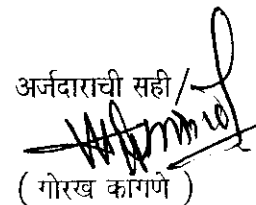 अर्जदाराची सही
( गोरख कांगणे )